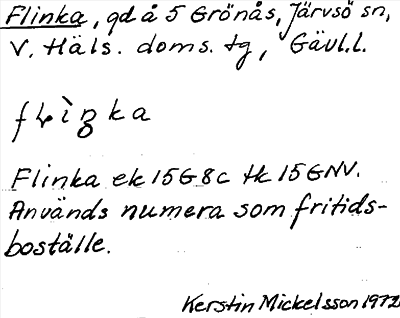 Flinka, gd å 5 Grönås, Järvsö sn,
V. Häls. doms. tg, Gävl.l.
flìŋka
Flinka ek 15G8c tk 15GNV.
Används numera som fritids-
boställe.
Kerstin Mickelsson 1972